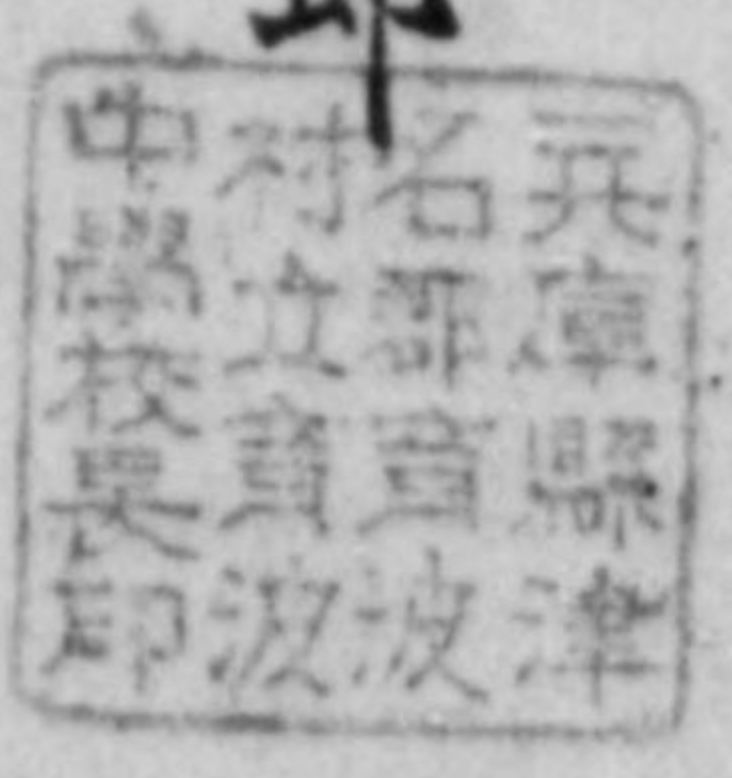 兵庫縣津
名郡育波
村立育波
中學校長印